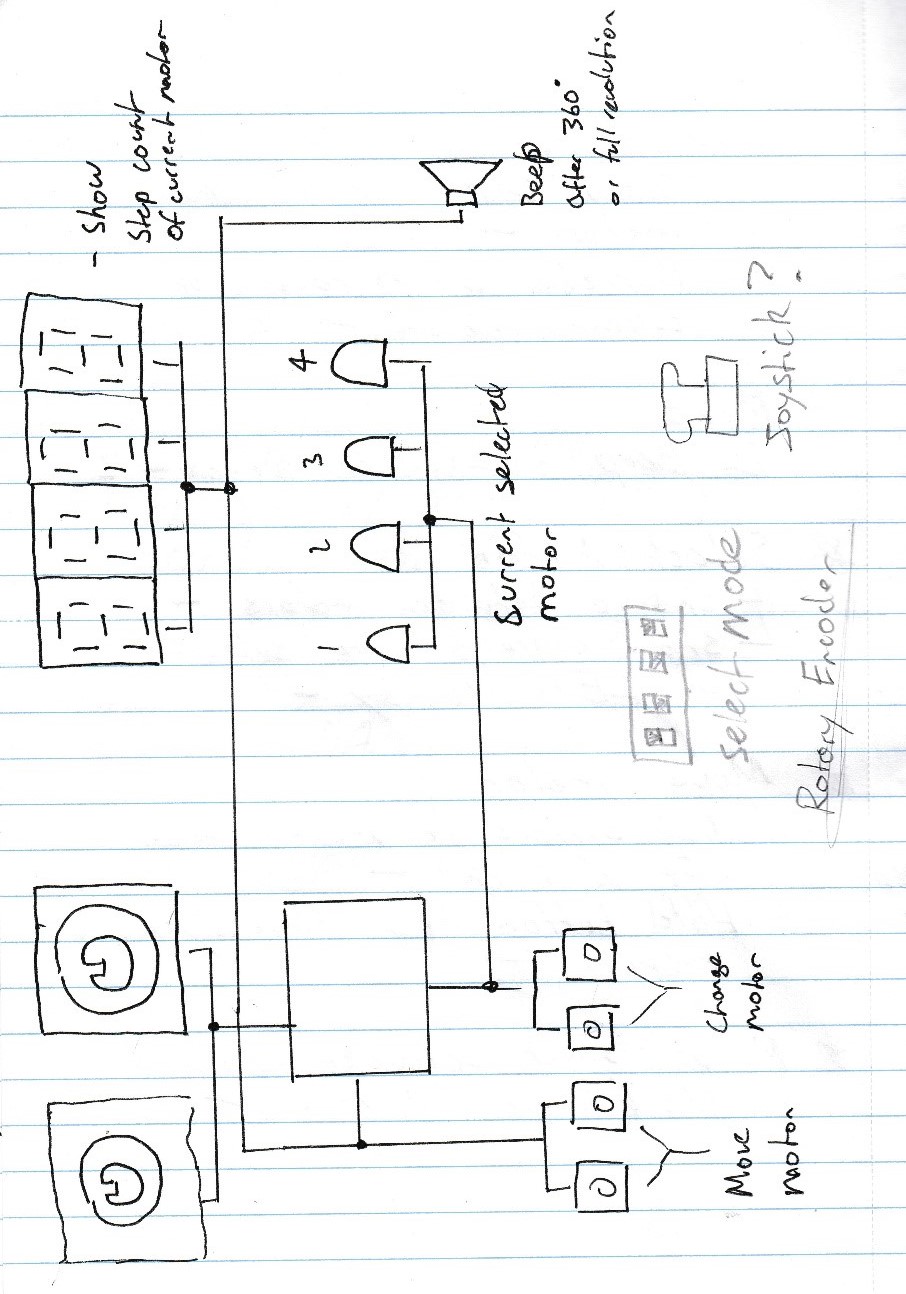 - Show
Step count
of current motor
1 2 3 4
Current selected
motor
Beep
after 360°
or full revolution
Move
motor
Change
motor
select mode
Joystick?
Rotary Encoder